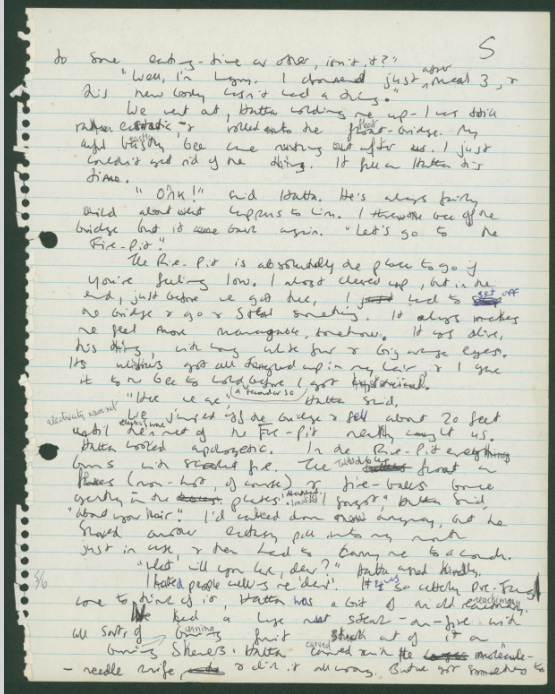 5
to some eating-time or other, isn't it?"
"Well, I'm hungry. I drowned just after meal 3, &
this new body hasn't had a thing."
We went out, Hatta holding me up - I was still
rather ecstatic, & rolled onto the float-bridge. My
awful bee came rushing out after us. I just
couldn't get rid of the thing. It fell on Hatta this
time.
"Oink!" said Hatta. He's always fairly
mild about what happens to him. I threw the bee off the
bridge but it came back again. "Let's go to the
Fire-Pit."
The Fire-Pit is absolutely the place to go if
you're feeling low. I almost cheered up, but in the
end, just before we got there, I just had to get off
the bridge & go & steal something. It always makes
me feel more manageable, somehow. It was alive,
this thing, with long white fur & big orange eyes.
Its whiskers got all tangled up in my hair & I gave
it to the bee to hold before I got
"Here we are," Hatta said,
We jumped off the bridge & fell about 20 feet
until the electricity wave net of the Fire-Pit neatly caught us.
Hatta looked apologetic. In the Fire-Pit everything
burns with fire. The tables float on
flames (non-hot, of course) & fire-balls bounce
gently in the plates. "I forgot", Hatta said,
"about your hair." I'd calmed down anyway, but he
shoved another ecstasy pill into my mouth
just in case, & then had to carry me to a couch.
"What will you have, dear?" Hatta asked kindly.
I hated people calling me 'dear'. It was so utterly
come to think of it, Hatta was a bit of an old
We had a huge nut steak-on-fire with
all sorts of burning fruit stuck out of it on
burning skewers. Hatta carved it with the molecule-
-needle knife, & did it all wrong. But we got something to